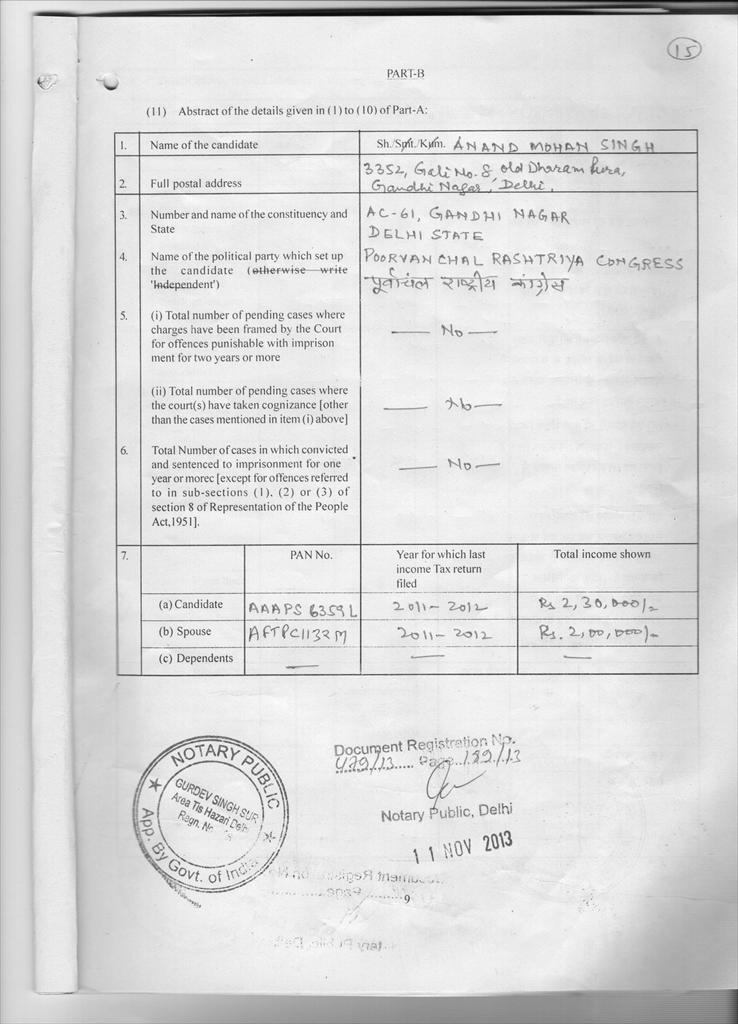 15
PART-B
(11) Abstract of the details given in (1) to (10) of Part-A:
1. Name of the candidate Sh./Smt./Kum. ANAND MOHAN SINGH
2. Full postal address 3352, Gali No. 8, old Dharam Pura,
Gandhi Nagar, Delhi.
3. Number and name of the constituency and AC-61, GANDHI NAGAR
State DELHI STATE
4. Name of the political party which set up POORVANCHAL RASHTRIYA CONGRESS
the candidate (otherwise write पूर्वांचल राष्ट्रीय कांग्रेस
'Independent')
5. (i) Total number of pending cases where
charges have been framed by the Court — No —
for offences punishable with imprison
ment for two years or more
(ii) Total number of pending cases where
the court(s) have taken cognizance [other — No —
than the cases mentioned in item (i) above]
6. Total Number of cases in which convicted
and sentenced to imprisonment for one — No —
year or morec [except for offences referred
to in sub-sections (1), (2) or (3) of
section 8 of Representation of the People
Act,1951].
7. PAN No. Year for which last Total income shown
income Tax return
filed
(a) Candidate AAAPS 6359L 2011-2012 Rs 2,30,000/-
(b) Spouse AFTPC1132M 2011-2012 Rs. 2,00,000/-
(c) Dependents — — —
NOTARY PUBLIC
GURDEV SINGH SUR
Area Tis Hazari Delhi
Regn. No.
App. By Govt. of India
Document Registration No.
479/13..... Page..189./13
Notary Public, Delhi
11 NOV 2013
9